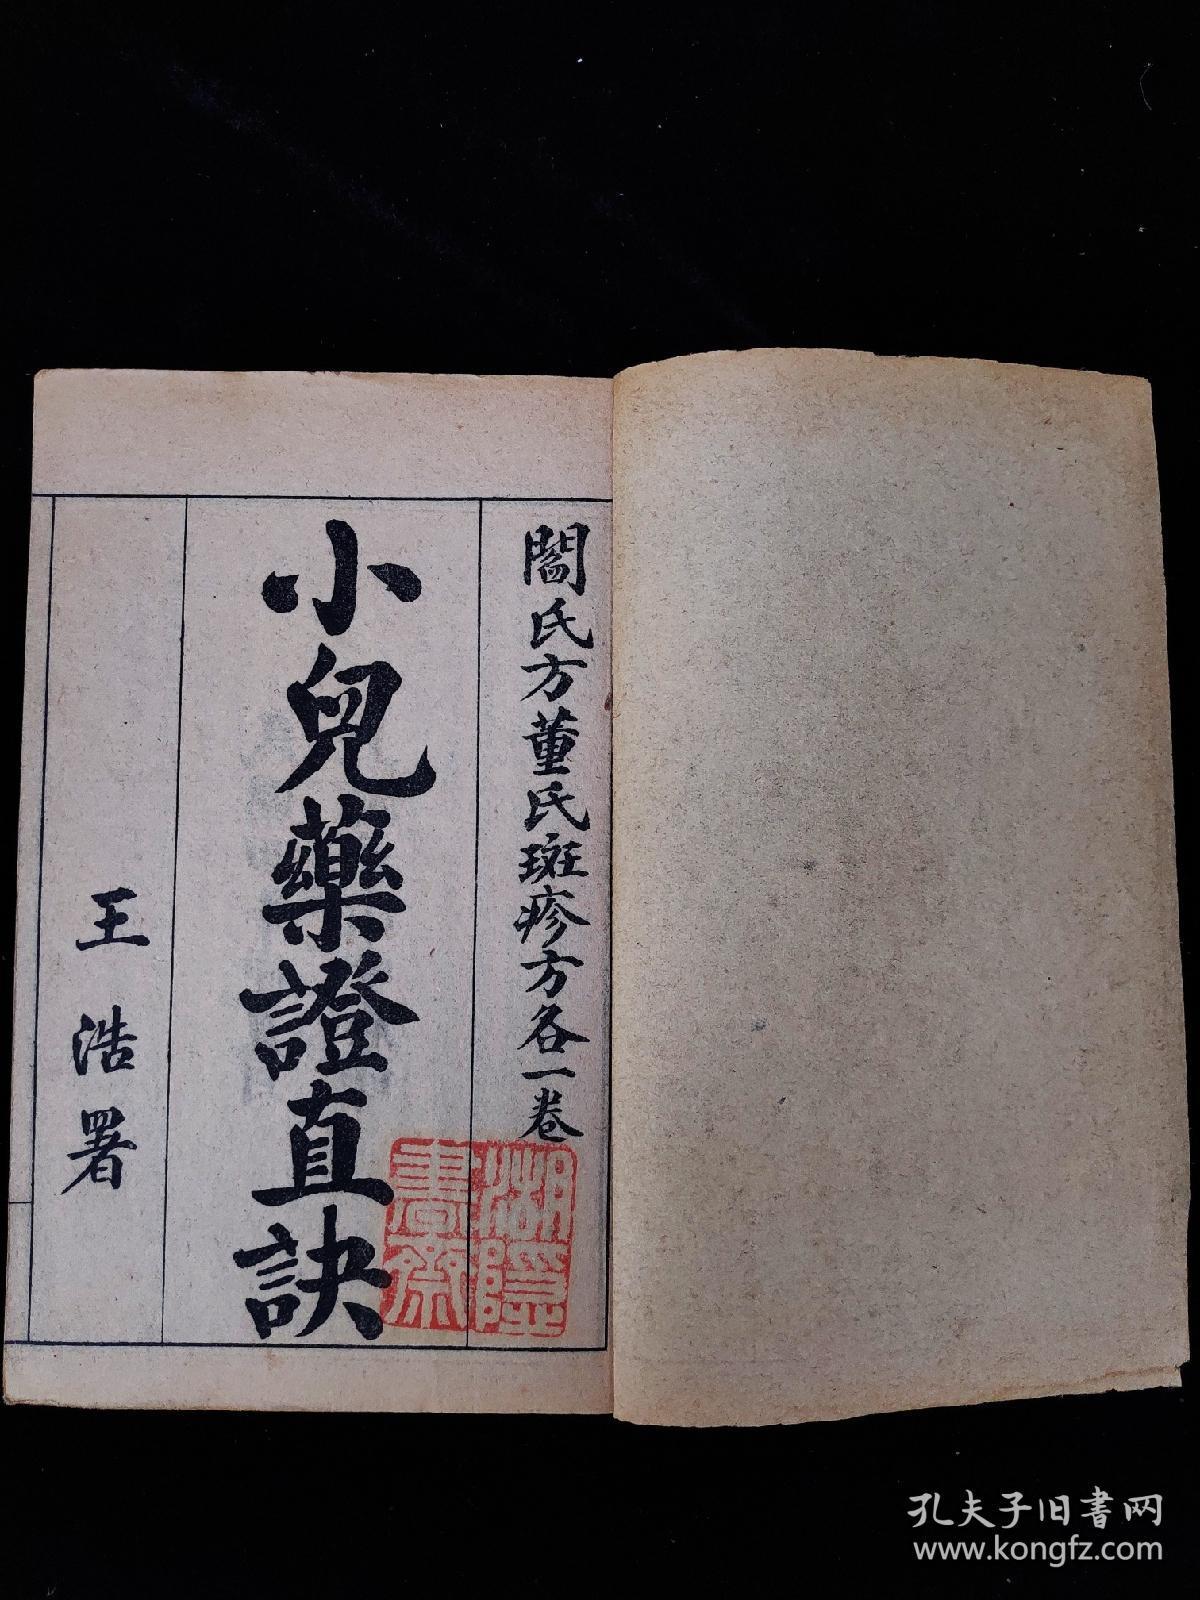 閻氏方董氏斑疹方各一卷
小兒藥證直訣
王浩署
孔夫子旧書网
www.kongfz.com